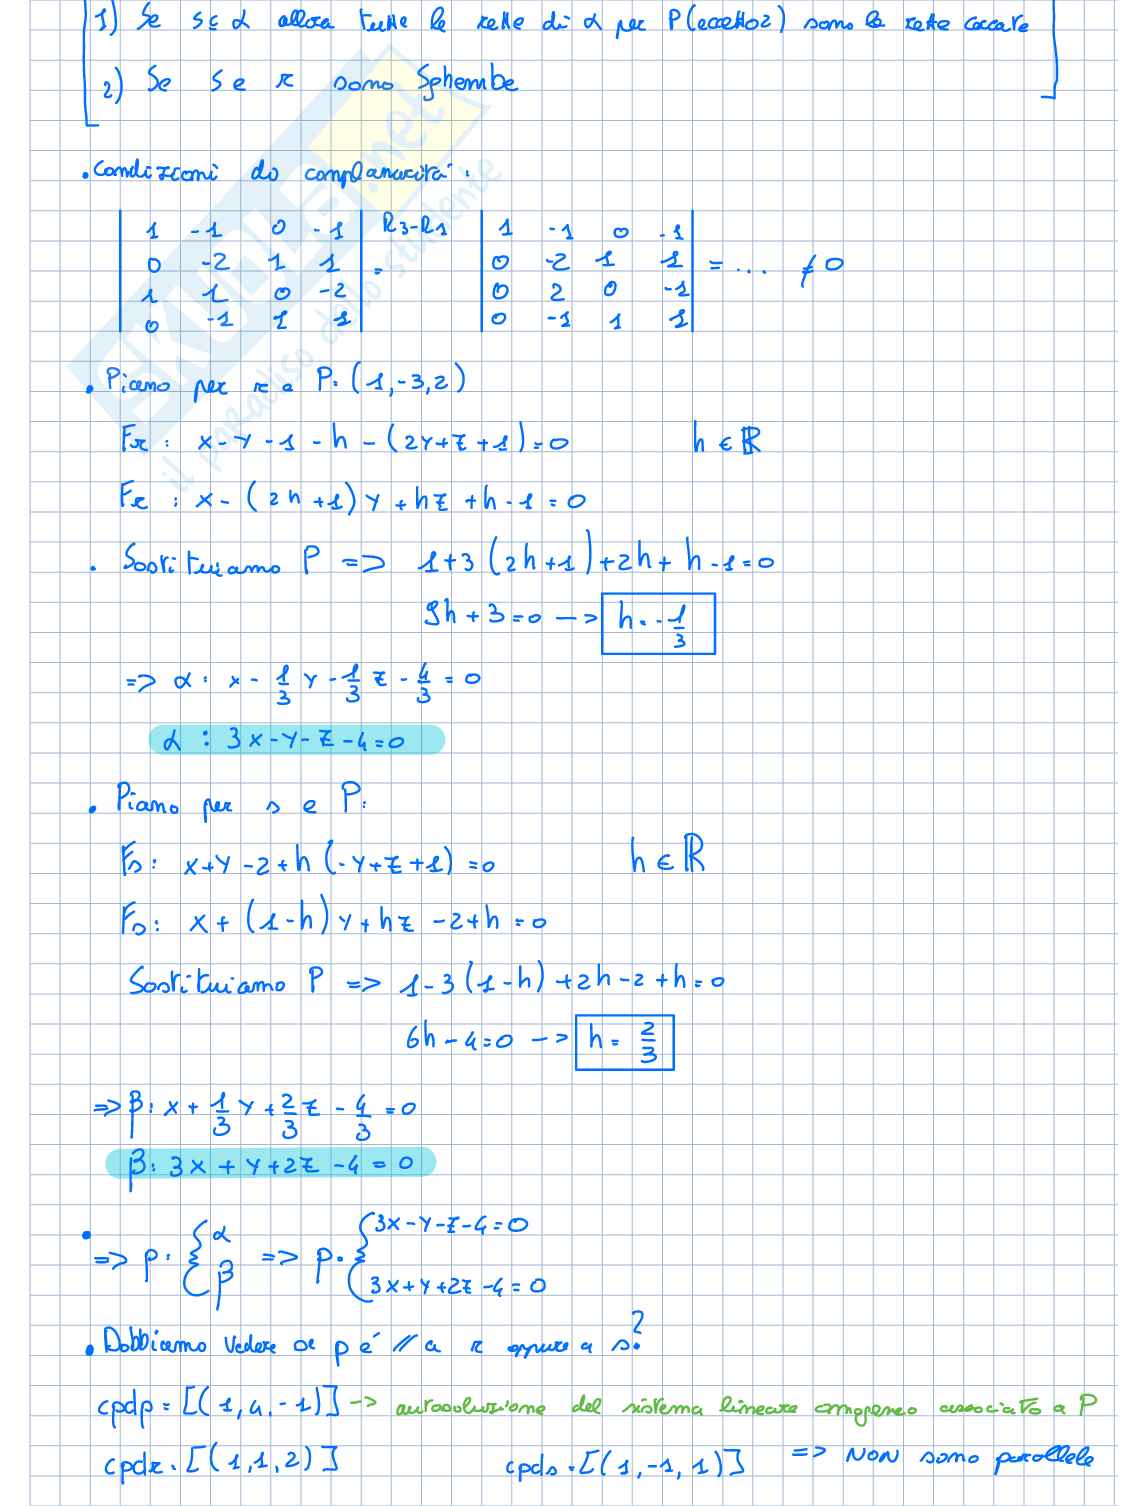 1) Se s⊆ α allora tutte le rette di α per P (eccetto r) sono le rette cercate
2) Se s e r sono Sghembe
• Condizioni do complanarità:
| 1 -1 0 -1 | R3-R1 | 1 -1 0 -1 |
| 0 -2 1 1 | = | 0 -2 1 1 | = ... ≠ 0
| 1 1 0 -2 | | 0 2 0 -1 |
| 0 -1 1 1 | | 0 -1 1 1 |
• Piano per r a P: (1,-3,2)
Fr: x-y-1-h-(2y+z+1)=0 h ∈ ℝ
Fr: x-(2h+1)y+hz+h-1=0
• Sostituiamo P => 1+3(2h+1)+2h+h-1=0
9h+3=0 —> h=-1/3
=> α: x-1/3y-1/3z-4/3=0
α: 3x-y-z-4=0
• Piano per s e P:
Fs: x+y-2+h(-y+z+1)=0 h ∈ ℝ
Fs: x+(1-h)y+hz-2+h=0
Sostituiamo P => 1-3(1-h)+2h-2+h=0
6h-4=0 —> h=2/3
=> β: x+1/3y+2/3z-4/3=0
β: 3x+y+2z-4=0
• => p: { α β => p: { 3x-y-z-4=0
3x+y+2z-4=0
• Dobbiamo vedere se p é // a r oppure a s?
cpdp=[(1,4,-1)] -> autosoluzione del sistema lineare omogeneo associato a P
cpdr=[(1,1,2)] cpds=[(1,-1,1)] => NON sono parallele
SKUOLA.net
il paradiso dello studente